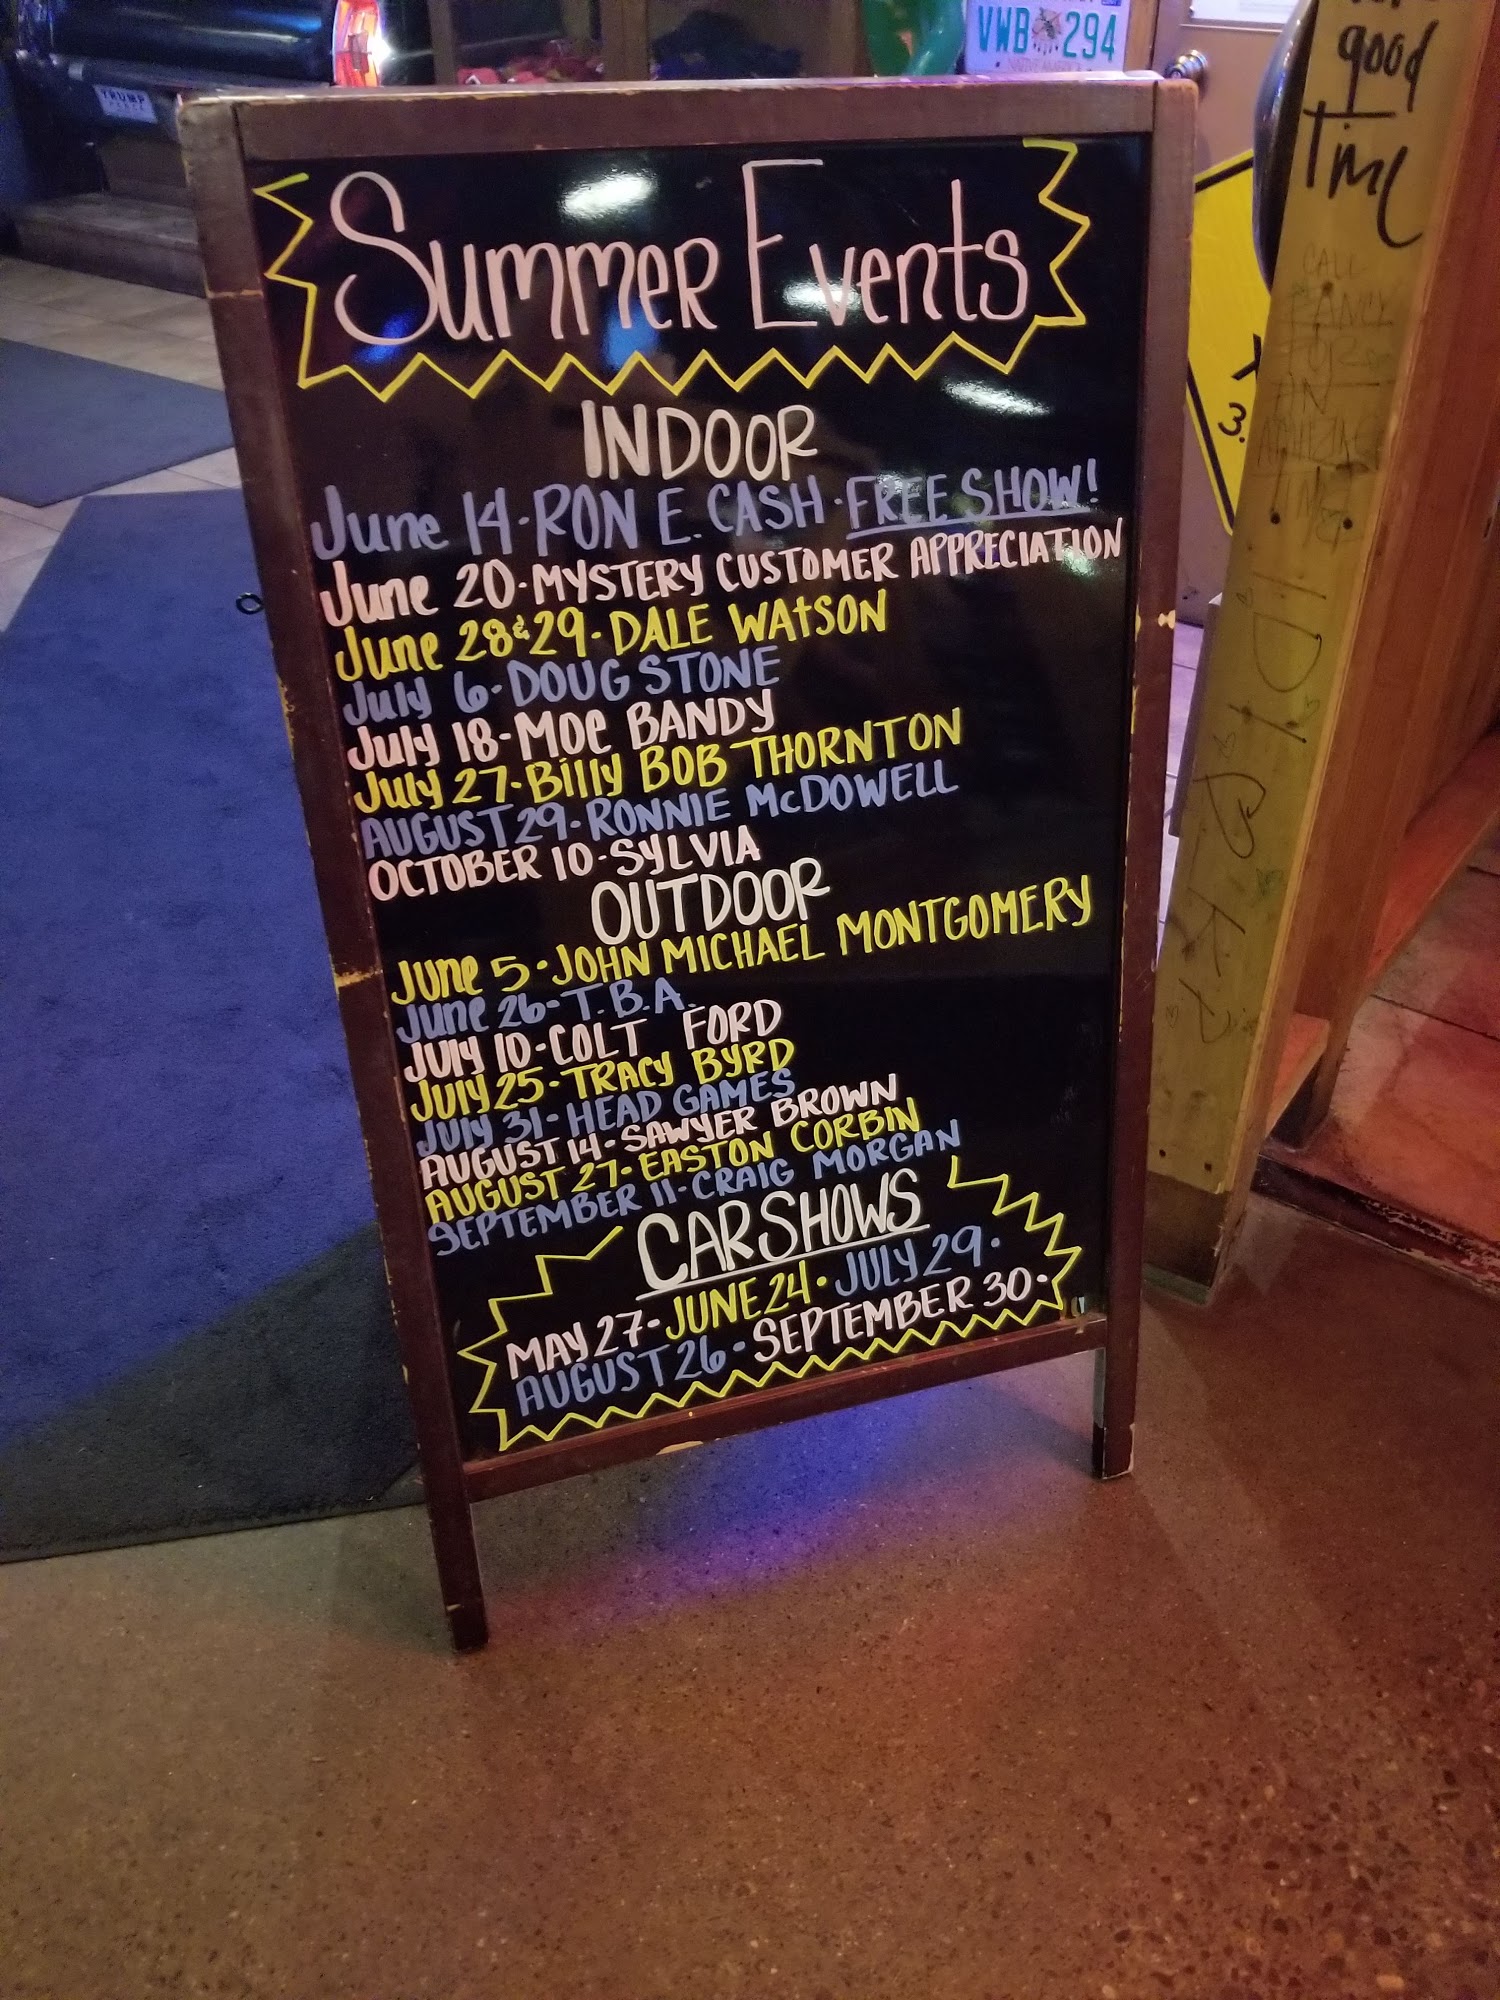 VWB 294
NATIVE AMERICA
TRUMP
good
Time
CALL
Summer Events
INDOOR
June 14 · RON E. CASH · FREE SHOW!
June 20 · MYSTERY CUSTOMER APPRECIATION
June 28 & 29 · DALE WATSON
July 6 · DOUG STONE
July 18 - Moe BANDY
July 27 · Billy BOB THORNTON
AUGUST 29 · RONNIE McDOWELL
OCTOBER 10 · SYLVIA
OUTDOOR
June 5 · JOHN MICHAEL MONTGOMERY
June 26 - T.B.A.
July 10 - COLT FORD
July 25 · TRACY BYRD
July 31 · HEAD GAMES
AUGUST 14 · SAWYER BROWN
AUGUST 27 · EASTON CORBIN
SEPTEMBER 11 - CRAIG MORGAN
CAR SHOWS
MAY 27 · JUNE 24 · JULY 29 ·
AUGUST 26 · SEPTEMBER 30 ·